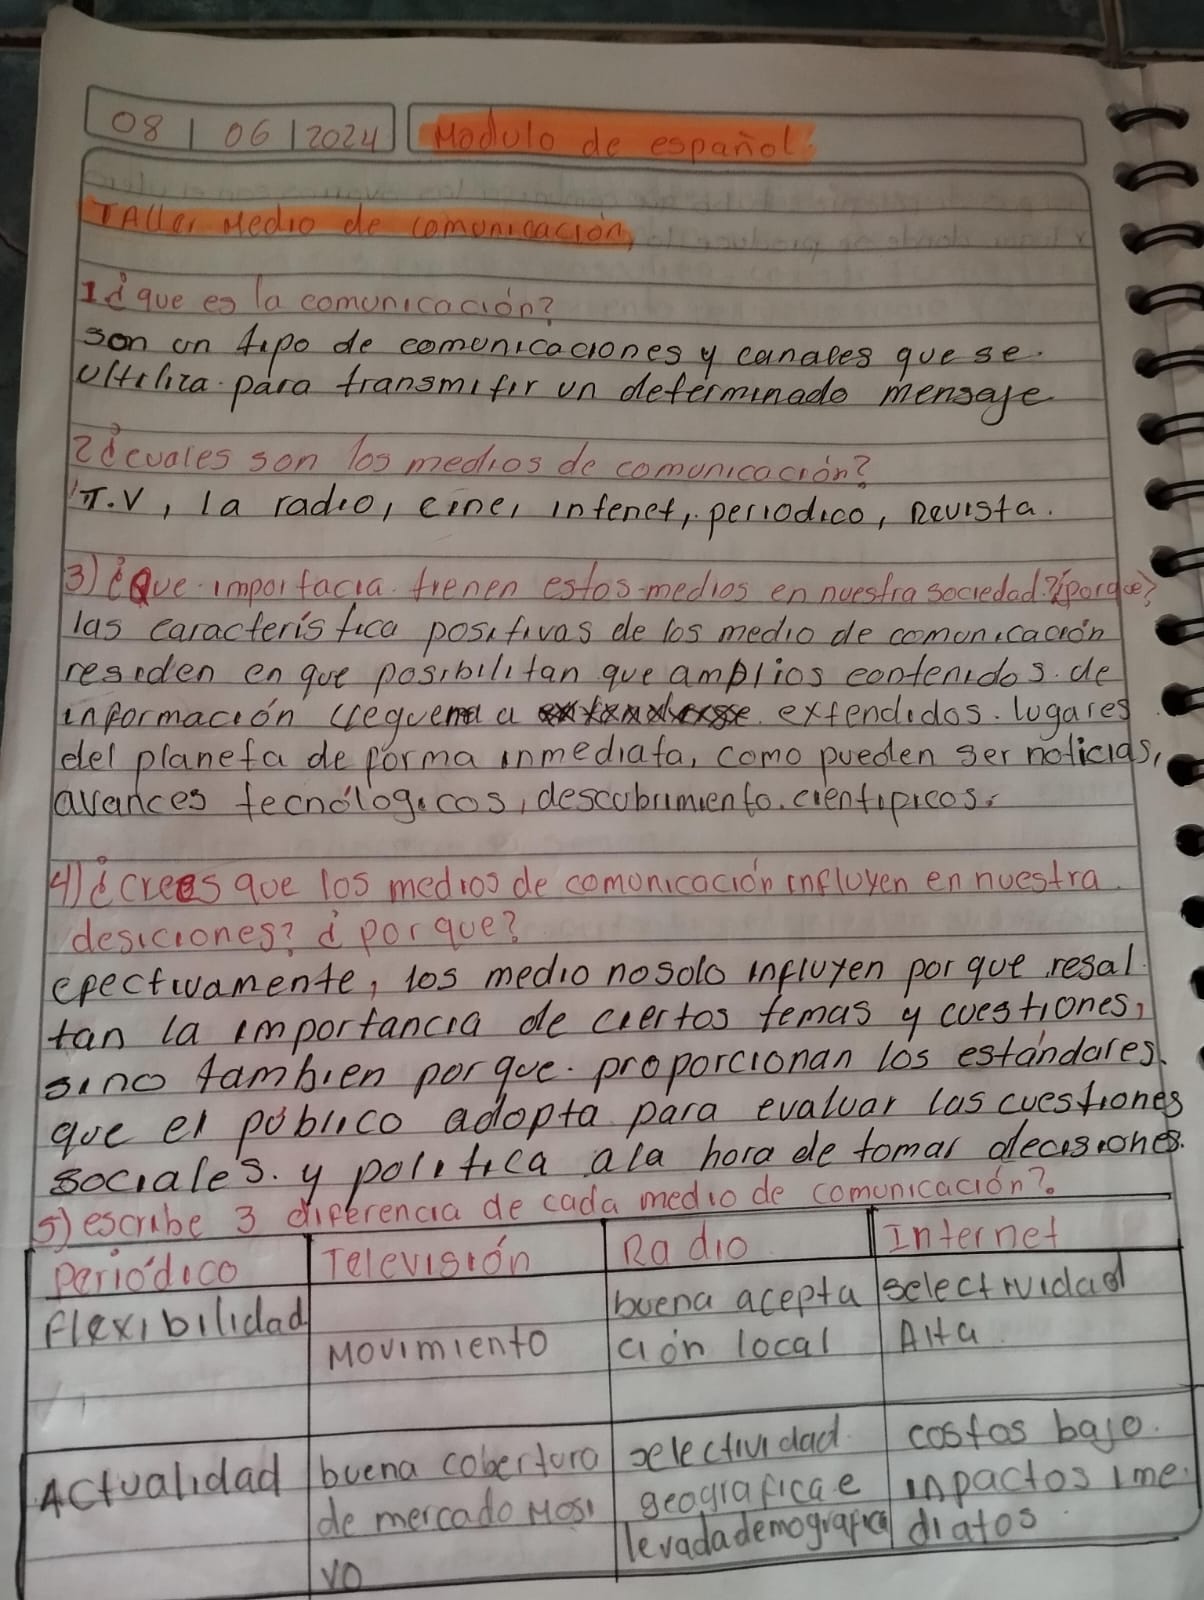 08 | 06 | 2024 Modulo de español.
TAller Medio de comunicación,
1¿que es la comunicación?
son un tipo de comunicaciones y canales que se.
Ultiliza para transmitir un determinado mensaje
2¿cuales son los medios de comunicación?
T.V, la radio, cine, intenet, periodico, Revista.
3) ¿Que importacia tienen estos medios en nuestra sociedad? ¿porque?
las caracteristica positivas de los medio de comunicación
residen en que posibilitan que amplios contenidos de
información lleguen a extendidos lugares
del planeta de forma inmediata, como pueden ser noticias,
avances tecnólogicos, descubrimiento cientificos.
4) ¿crees que los medios de comunicación influyen en nuestra
desiciones? ¿por que?
efectivamente, los medio nosolo influyen por que resal
tan la importancia de ciertos temas y cuestiones,
sino tambien por que proporcionan los estándares
que el público adopta para evaluar las cuestiones
sociales. y politica ala hora de tomar decisiones.
5) escribe 3 diferencia de cada medio de comunicación?.
Periódico Televisión Radio Internet
Flexibilidad Movimiento buena acepta selectividad
ción local Alta
Actualidad buena cobertura selectividad costos bajo.
de mercado Mosi geografica e inpactos ime
vo levada demografica diatos